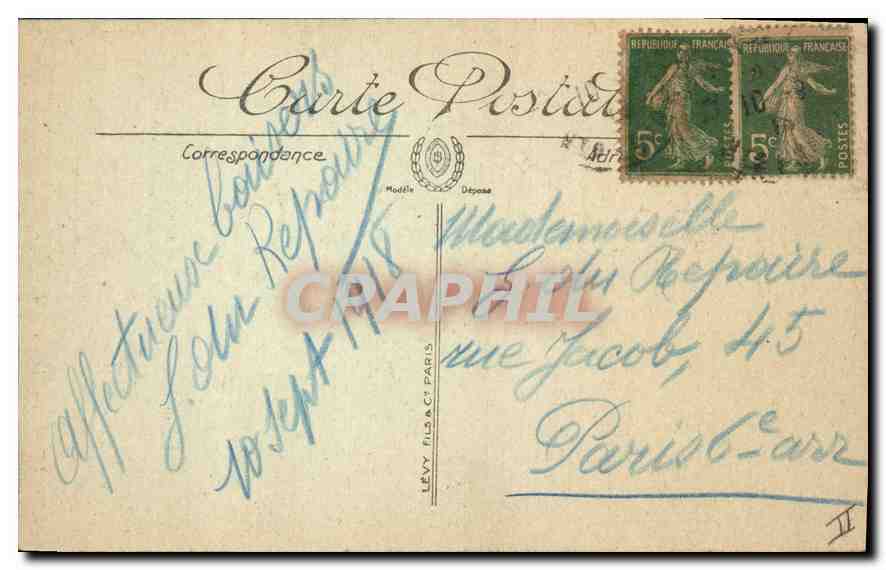 Carte Postale
Correspondance
Modèle Déposé
RÉPUBLIQUE FRANÇAISE
5c
POSTES
RÉPUBLIQUE FRANÇAISE
5c
POSTES
affectueux baisers
G. du Repaire
10 sept 1918
LÉVY FILS & Cie PARIS
Mademoiselle
G. du Repaire
rue Jacob, 45
Paris 6e arr
CPAPHIL
II